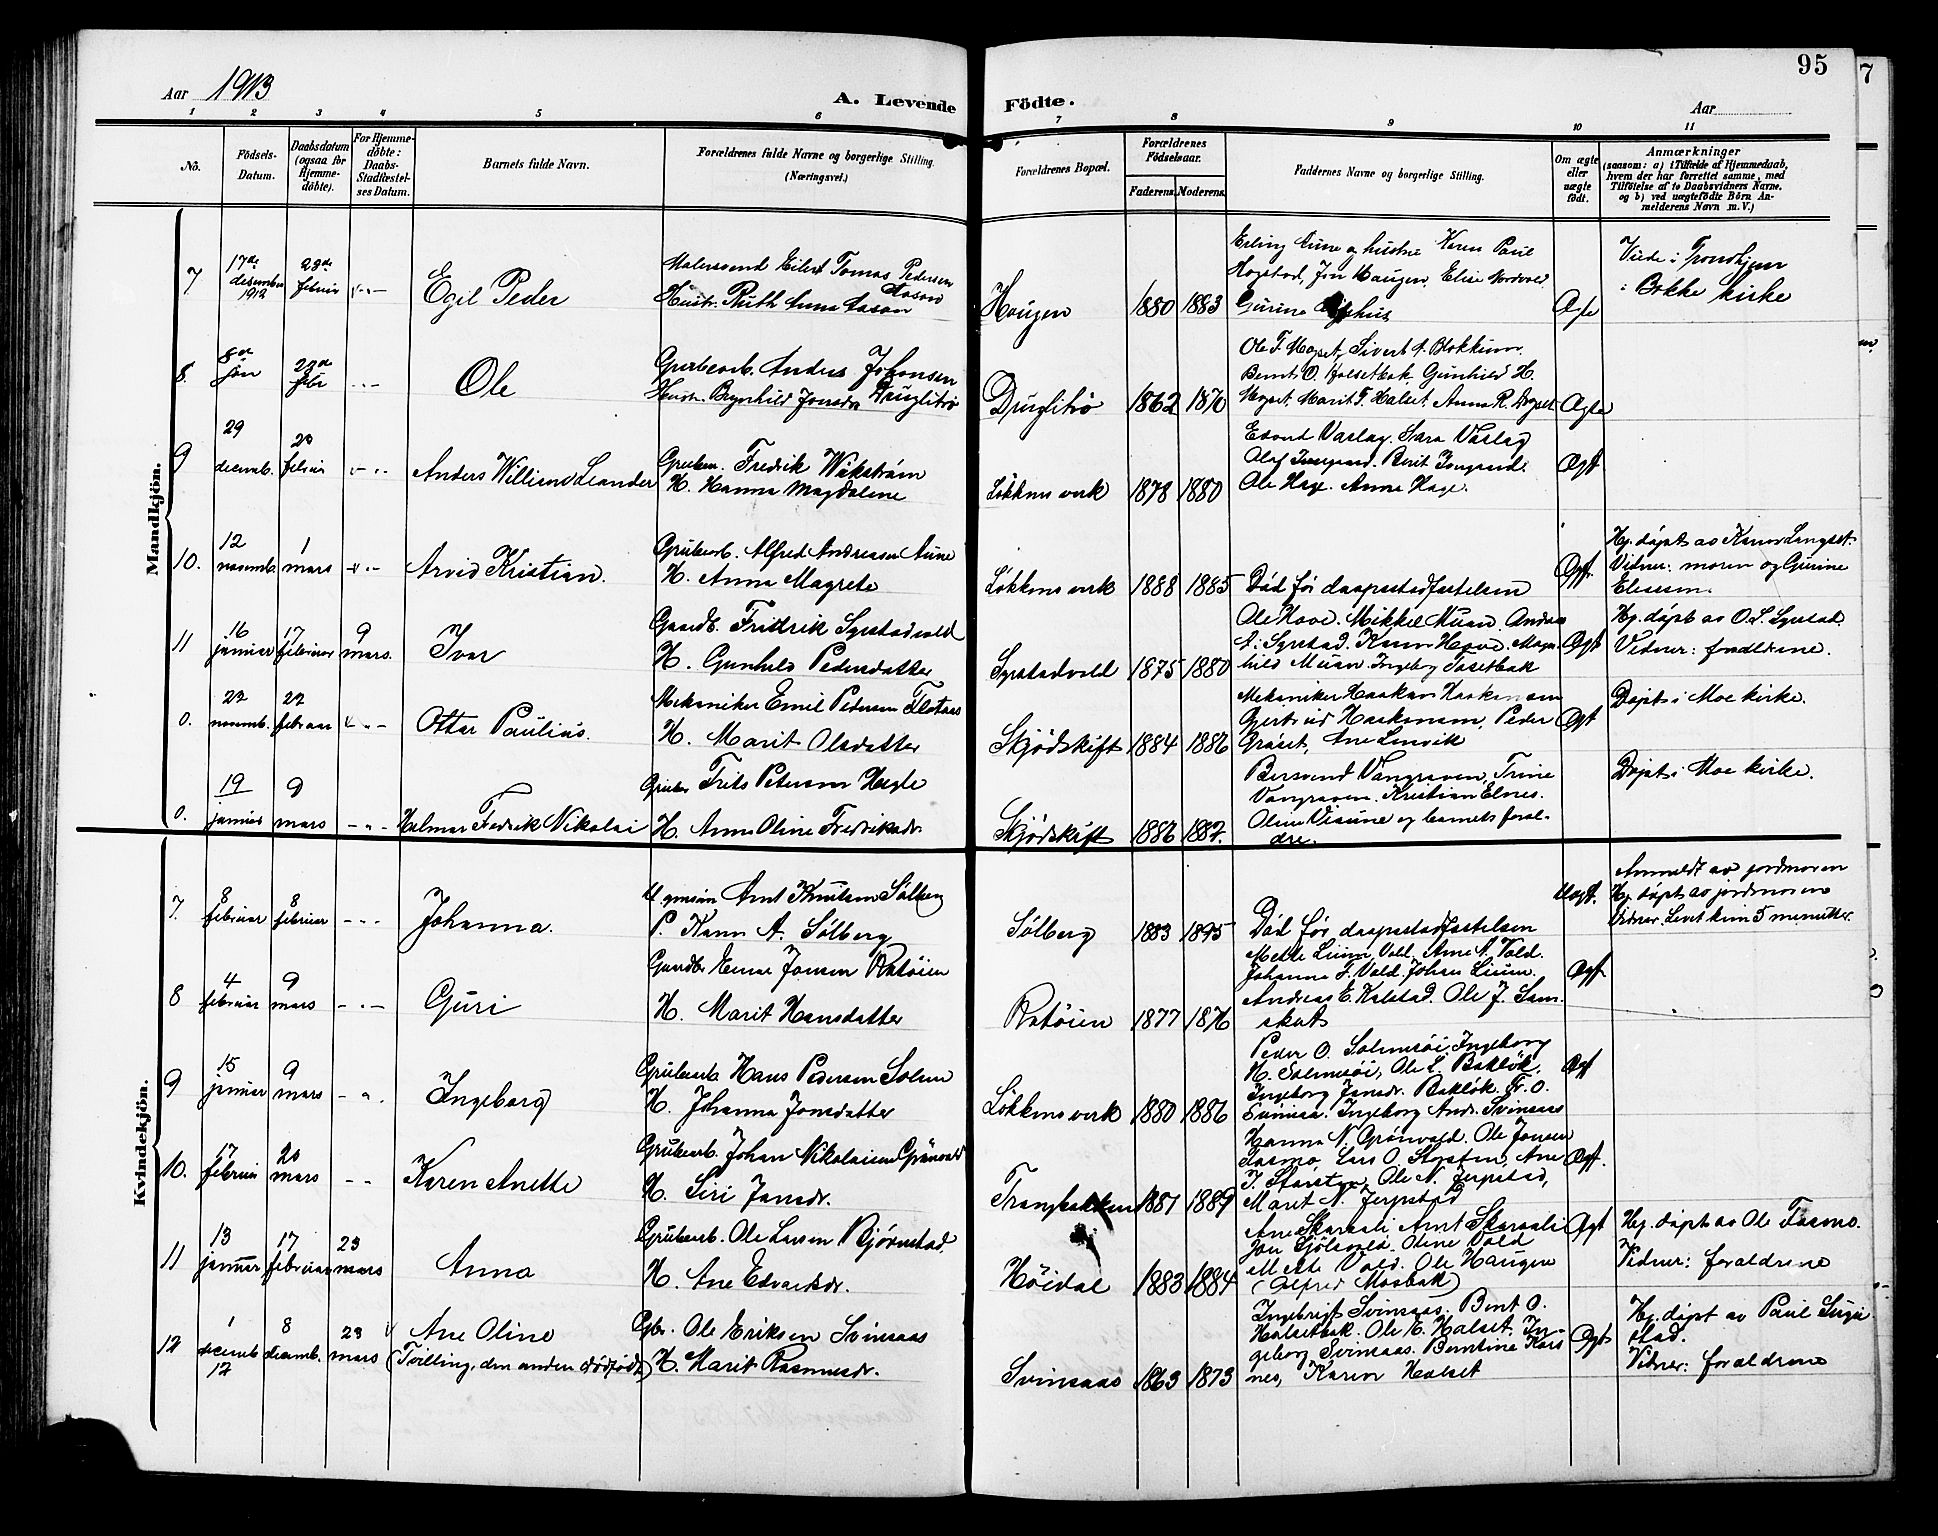 Aar 1913
A. Levende Födte.
95
Aar
7
1 2 3 4 5 6 7 8 9 10 11
No.
Födsels-Datum.
Daabsdatum (ogsaa for Hjemme-döbte).
For Hjemme-döbte: Daabs-Stadfæstel-ses Datum.
Barnets fulde Navn.
Forældrenes fulde Navne og borgerlige Stilling. (Næringsvei.)
Forældrenes Bopæl.
Forældrenes Födselsaar.
Faderens. Moderens.
Faddernes Navne og borgerlige Stilling.
Om ægte eller uægte födt.
Anmærkninger
(saasom: a) i Tilfælde af Hjemmedaab, hvem der har forrettet samme, med Tilföielse af to Daabsvidners Navne, og b) ved uægtefödte Börn An-melderens Navn m. V.)
Mandkjön.
7 17de desember 1912 23de februar Egil Peder
Malersvend Eilert Tomas Pedersen Aason
Hustr. Ruth Anna Aason
Haugen 1880 1883
Erling Aune og hustru Karen Paul
Hogstad, Jon Haugen, Elise Nordvold
Gurine
Ægte
Viede i Trondhjem
i Bakke kirke
8. 8de jan 23de febr Ole
Grubearb. Anders Johansen
Hustr. Brynhild Jonsdr Druglitrø
Druglitrø 1862 1870
Ole T. Hogset, Sivert A. Blokkum.
Bernt O. Halsetbak, Gunhild H.
Hogset, Marit T. Halset, Anna R. Hogset
Ægte
9 29 decemb. 23 februar Anders William Leander
Grubem. Fredrik Wikstrøm
H. Hanna Magdalene
Løkkens verk 1878 1880
Edvard Vaslag. Sara Vaslag
Olaf Iversgaard. Berit Iversgaard.
Ole Hage. Anne Hage.
Ægt
10. 12 novemb. 1 mars Arvid Kristian.
Grubearb. Alfred Andreassen Aune
H. Anna Magrete
Løkkens verk 1888 1885
Død før daapsstadfæstelsen
Ægt.
Hj. døpt av Karen Langset.
Vidner: moren og Gurine
Eliesen.
11 16 januar 17 februar 9 mars. Ivar
Gaardb. Fridrik Syrstadvold
H. Gunhild Pedersdatter
Syrstadvold 1875 1880
Ole Hove. Mikkel Muan. Anders
A. Syrstad. Karen Hove. Magn
hild Muan. Ingeborg Tosetbak
Ægt
Hj. døpt av O. S. Syrstad.
Vidner: foreldrene.
0. 22 novemb. 22 februar Ottar Paulius.
Mekaniker Emil Pedersen Flotaas
H. Marit Olsdatter
Skjødskift 1884 1886
Mekaniker Haakon Haakonsen
Gjertrud Haakonsen, Peder
Grøset, Ane Lenvik
Ægt
Døpt i Moe kirke.
0. 19 januar 9 mars Hilmar Fredrik Nikolai
Grubea Frits Petersen Hagle
H. Anna Oline Fredriksdr.
Skjødskift 1886 1887.
Bersvend Vangraven, Trine
Vangraven. Kristian Elnes.
Oline Visune og barnets forel-
dre.
Døpt i Moe kirke.
Kvindekjön.
7. 8 februar 8 februar Johanna.
U. gmsin Arnt Knutsen Sølberg
P. Karen A. Sølberg
Sølberg 1883 1895
Død før daapsstadfæstelsen
Uægt.
Anmeldt av jordmoren
Hj. døpt av jordmoren
Vidner. Levet kun 5 menutter.
8 4 februar 9 mars Guri
Gaardbr Einar Jonsen Ratøien
H. Marit Hansdatter
Ratøien 1877 1876
Mette Liium Vold, Arne A. Vold.
Johanna T. Vold. Johan Liium.
Andreas E. Kalstad. Ole J. Sam-
skot
Ægt.
9 15 januar 9 mars Ingeborg
Grubearb Hans Pedersen Solem
H. Johanna Jonsdatter
Løkkens verk 1880 1886
Peder O. Solemsøi, Ingeborg
H. Solemsøi, Ole L. Bakløk,
Ingeborg Jonsdr. Bakløk. O.
Svinsaa. Ingeborg Andr. Svinsaas
Ægt
10. 17 februar 20 mars Karen Anette
Grubearb. Johan Nikolaisen Grønvold
H. Siri Jonsdr.
Trangbakken 1887 1889
Hanna N. Grønvold. Ole Jonsen
Fosmo, Lars O. Storsten, Ane
J. Storsten, Ole N. Jerpstad,
Marit N. Jerpstad
Ægt.
11 13 januar 17 februar 23 mars Anna
Grubearb. Ole Larsen Bjørnstad.
H. Ane Edvardsdr.
Høidal 1883 1884
Ane Skaraali Arnt Skaraali
Jon Gjølsvold. Oline Vold
Mette Vold. Ole Haugen
(Alfred Mosbak)
Ægt
Hj. døpt av Ole Fosmo.
Vidner: foreldrene
12 1 decemb 12 8 decemb. 23 mars Ane Oline
(Tvilling, den anden dødfødt)
Gbr. Ole Eriksen Svinsaas
H. Marit Rasmusdr.
Svinsaas 1863 1873
Ingebrigt Svinsaas. Bernt O.
Halsetbak. Ole E. Halset. In-
geborg Svinsaas. Berntine Kors
nes, Karen Halset
Ægt
Hj. døpt av Paul
stad.
Vidner: foreldrene